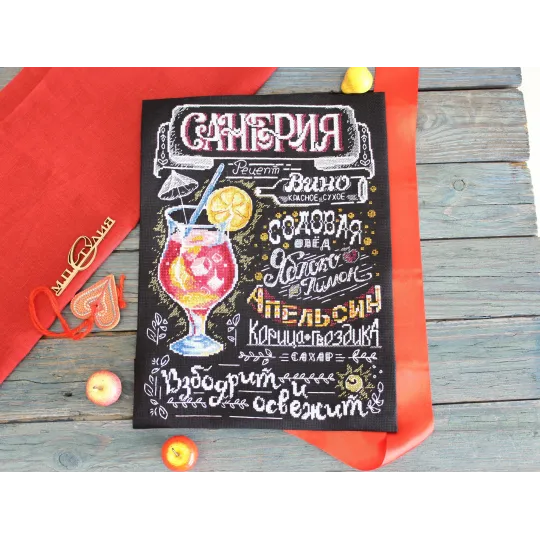 САНГРИЯ
Рецепт
Вино
КРАСНОЕ СУХОЕ
СОДОВАЯ
Яблоко
Лимон
АПЕЛЬСИН
Корица+гвоздика
САХАР
Взбодрит и
освежит